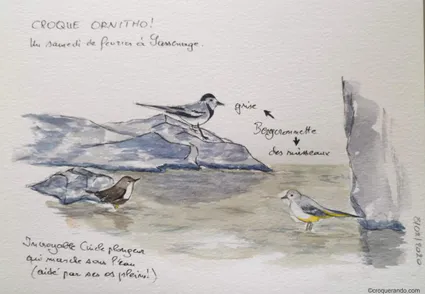 CROQUE ORNITHO!
Un samedi de février à Sassenage.
grise
Bergeronnette
des ruisseaux
Incroyable Cincle plongeur
qui marche sous l'eau
(aidé par ses os pleins!)
2020
©croquerando.com